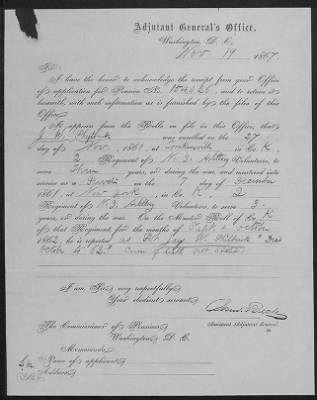 Adjutant General's Office,
Washington, D. C.
Nov. 19, 1867
Sir:
I have the honor to acknowledge the receipt from your Office
of application for Pension No. and to return it
herewith, with such information as is furnished by the files of this
Office.
It appears from the Rolls on file in this Office, that
J. W. was enrolled on the 27
day of Nov., 1861, at in Co. K
2 Regiment of N.Y. Artillery Volunteers, to serve
Three years, or during the war, and mustered into
service as a Private on the 7 day of December
1861, at New York, in Co. K 2
Regiment of N.Y. Artillery Volunteers, to serve 3
years, or during the war. On the Muster Roll of Co. K
of that Regiment, for the months of Sept & October
1862, he is reported
October 4 62" Cause of death not stated
I am, Sir, very respectfully,
Your obedient servant,
Assistant Adjutant General.
The Commissioner of Pensions
Washington D. C.
Memoranda.
Name of applicant,
Address,